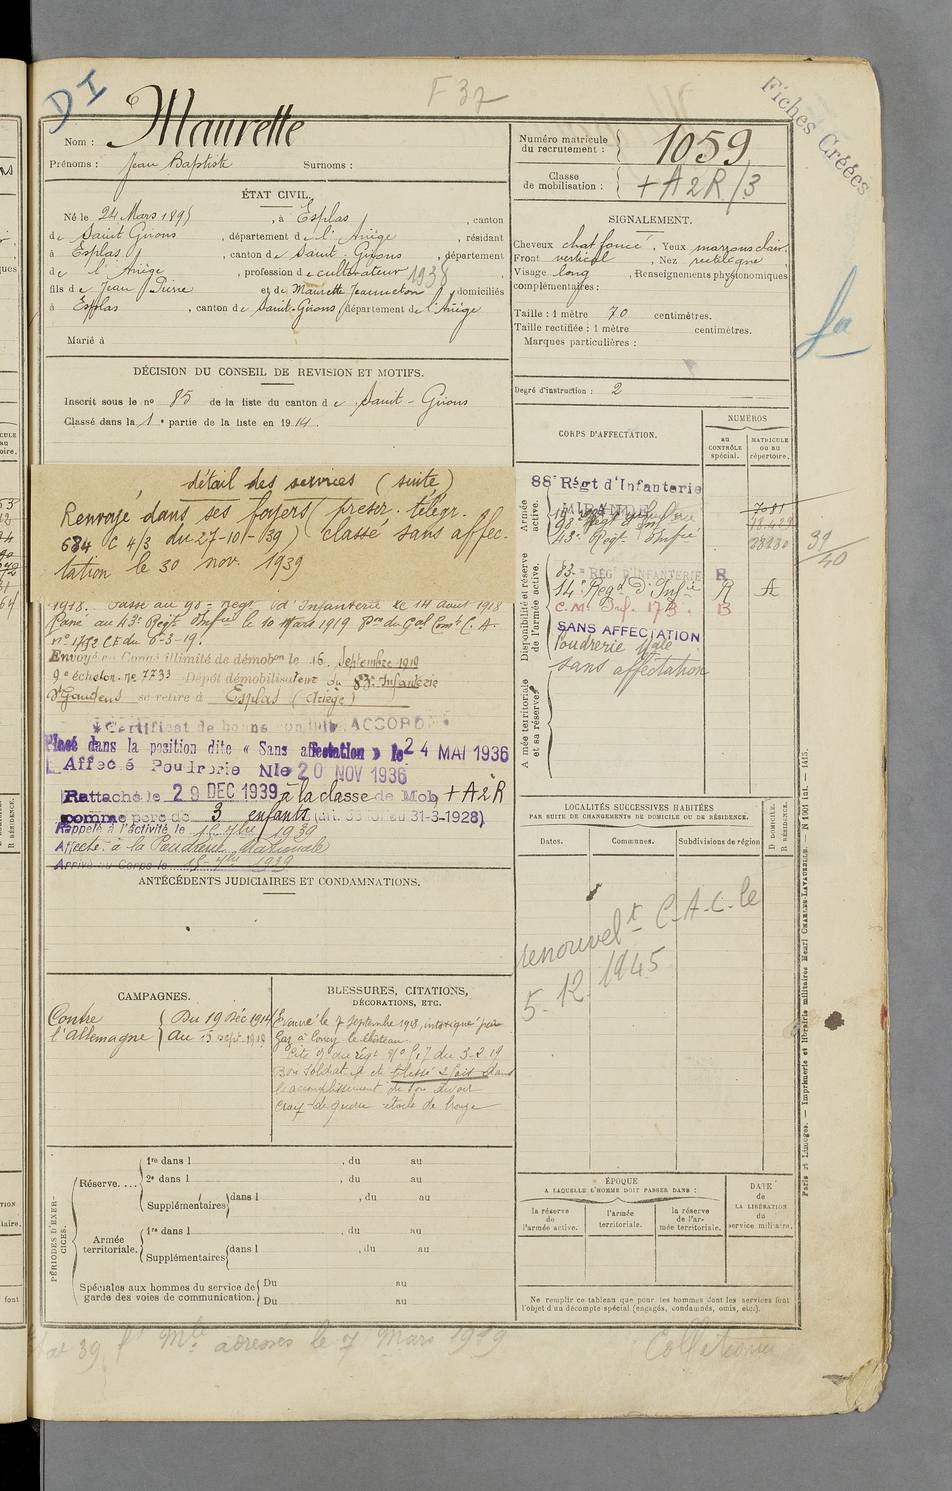 DI
F 37
Fiches Créées
Nom : Maurette
Prénoms : Jean Baptiste Surnoms :
Numéro matricule du recrutement : 1059
Classe de mobilisation : + A 2 R /3
ÉTAT CIVIL.
Né le 24 Mars 1895, à Esplas, canton
de Saint Girons, département de l'Ariège, résidant
à Esplas, canton de Saint-Girons, département
de l'Ariège, profession de cultivateur 1938
fils de Jean Pierre et de Maurette Jeanneton domiciliés
à Esplas, canton de Saint-Girons, département de l'Ariège
Marié à
SIGNALEMENT.
Cheveux chat foncé. Yeux marrons clair.
Front vertical, Nez rectiligne
Visage long, Renseignements physionomiques
complémentaires :
Taille : 1 mètre 70 centimètres.
Taille rectifiée : 1 mètre centimètres.
Marques particulières :
Degré d'instruction : 2
DÉCISION DU CONSEIL DE REVISION ET MOTIFS.
Inscrit sous le n° 85 de la liste du canton de Saint-Girons
Classé dans la 1e partie de la liste en 1914.
détail des services (suite)
Renvoyé dans ses foyers (prescr. télégr.
684 C 4/3 du 27-10-39) classé sans affec-
tation le 30 nov. 1939
1918. Passé au 98e Régt d'Infanterie le 14 Août 1918
Passé au 43e Régt Infrie le 10 Mars 1919
n° 1752 CE du 6-3-19.
Envoyé en Congé illimité de démobon le 16 Septembre 1919
9e échelon. n° 7733 Dépôt démobilisateur du 83e Infanterie
St Gaudens se retire à Esplas (Ariège)
Certificat de bonne conduite ACCORDÉ
Placé dans la position dite « Sans affectation » le 24 MAI 1936
Affecté Poudrerie Nle 20 NOV 1936
Rattaché le 29 DEC 1939 à la classe de Mob. + A 2 R
comme père de 3 enfants (art. 58 loi du 31-3-1928)
Rappelé à l'activité le 15 7bre 1939
Affecté à la Poudrerie Nationale
Arrivé au Corps le 15 7bre 1939
CORPS D'AFFECTATION.
NUMÉROS
AU CONTRÔLE spécial.
MATRICULE OU AU répertoire.
Armée active.
88e Régt d'Infanterie
MIRANDE
7081
98e Régt d'Inf
43e Régt Infie
39/40
Disponibilité et réserve de l'armée active.
83e RÉGt D'INFANTERIE R
14e Régt d'Infie R A
C. M. Inf. 173. B
SANS AFFECTATION
Poudrerie Nale
sans affectation
Armée territoriale et sa réserve
LOCALITÉS SUCCESSIVES HABITÉES
PAR SUITE DE CHANGEMENTS DE DOMICILE OU DE RÉSIDENCE.
Dates. Communes. Subdivisions de région
D. DOMICILE. R. RÉSIDENCE.
renouvelt C.A.C. le
5.12.1945
ANTÉCÉDENTS JUDICIAIRES ET CONDAMNATIONS.
CAMPAGNES.
Contre l'Allemagne
Du 19 Déc 1914
Au 15 sept. 1919
BLESSURES, CITATIONS,
DÉCORATIONS, ETC.
Evacué le 7 Septembre 1918, intoxiqué par
Gaz à Coucy le château.
Cité O. du régt N° 517 du 3-2-19
Bon soldat A été blessé 2 fois dans
l'accomplissement de son devoir
Croix de guerre étoile de bronze
PÉRIODES D'EXERCICES.
Réserve....
1re dans l , du au
2e dans l , du au
Supplémentaires dans l , du au
Armée territoriale.
1re dans l , du au
Supplémentaires dans l , du au
Spéciales aux hommes du service de garde des voies de communication.
Du au
Du au
ÉPOQUE
A LAQUELLE L'HOMME DOIT PASSER DANS :
la réserve de l'armée active.
l'armée territoriale.
la réserve de l'armée territoriale.
DATE de LA LIBÉRATION du service militaire.
Ne remplir ce tableau que pour les hommes dont les services font
l'objet d'un décompte spécial (engagés, condamnés, omis, etc.).
Paris et Limoges. — Imprimerie et librairie militaires Henri CHARLES-LAVAUZELLE.
adressés le 7 Mars 1919